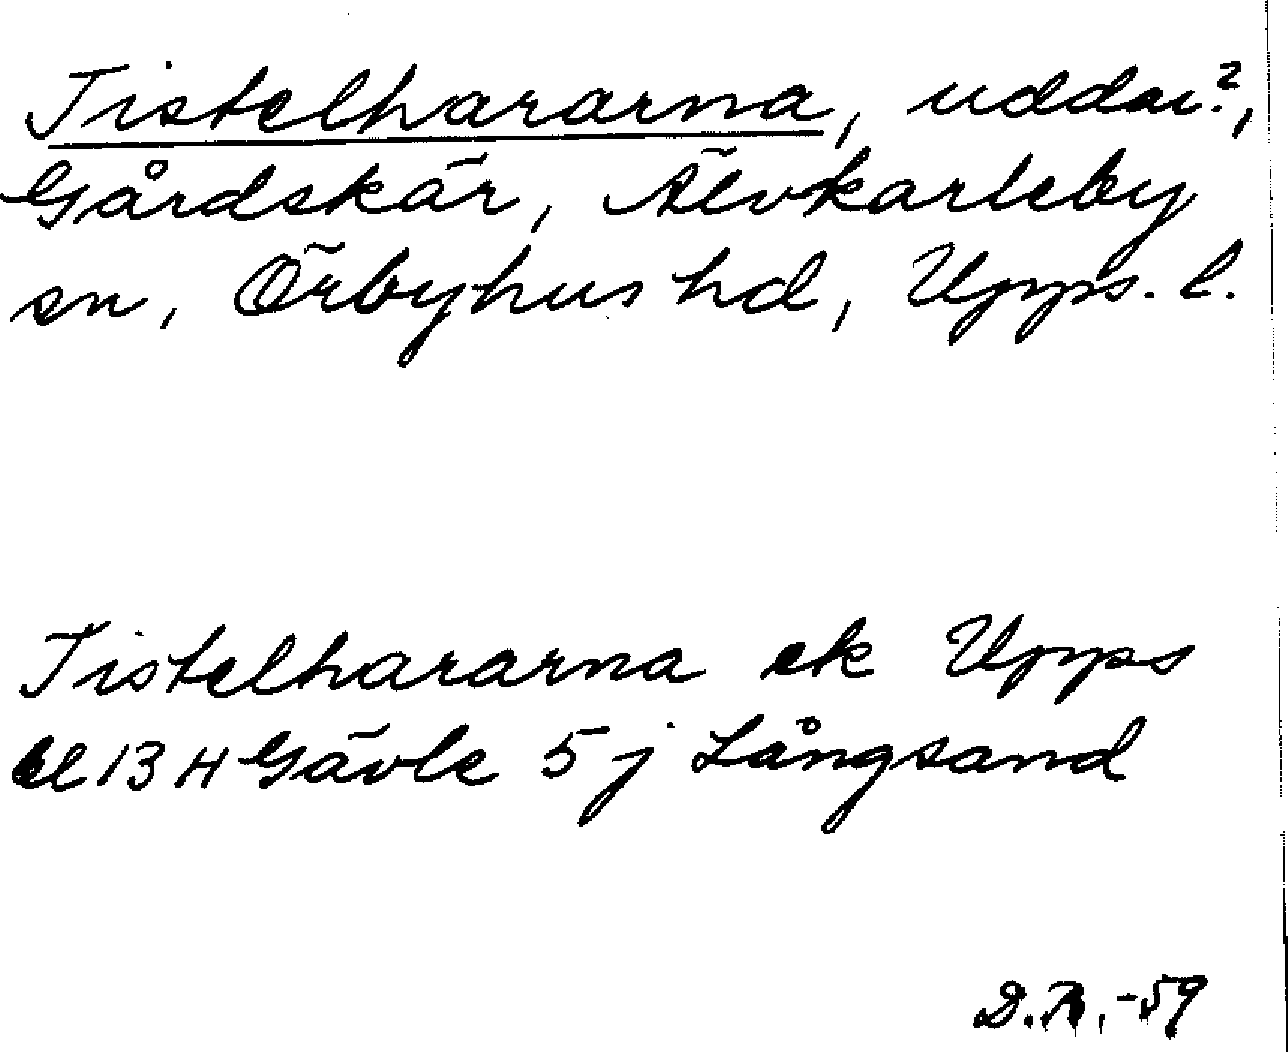 Tistelhararna, uddar?,
Gårdskär, Älvkarleby
sn, Örbyhus hd, Upps. l.
Tistelhararna ek Upps
bl 13 H Gävle 5 j Långsand
D. -59